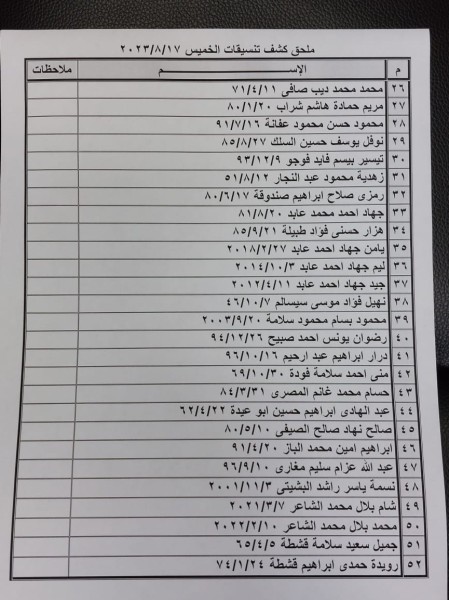 ملحق كشف تنسيقات الخميس ٢٠٢٣/٨/١٧
م الإســـــــم ملاحظات
٢٦ محمد محمد ديب صافى ٧١/٤/١١
٢٧ مريم حمادة هاشم شراب ٨٠/١/٢٠
٢٨ محمود حسن محمود عفانة ٩١/٧/١٦
٢٩ نوفل يوسف حسين السلك ٨٥/٨/٢٧
٣٠ تيسير بيسم فايد فوجو ٩٣/١٢/٩
٣١ زهدية محمود عبد النجار ٥١/٨/١٢
٣٢ رمزى صلاح ابراهيم صندوقة ٨٠/٦/١٧
٣٣ جهاد احمد محمد عابد ٨١/٨/٢٠
٣٤ هزار حسنى فؤاد طبيلة ٨٥/٩/٢١
٣٥ يامن جهاد احمد عابد ٢٠١٨/٢/٢٧
٣٦ ليم جهاد احمد عابد ٢٠١٤/١٠/٣
٣٧ جيد جهاد احمد عابد ٢٠١٢/٤/١١
٣٨ نهيل فؤاد موسى سيسالم ٤٦/١٠/٧
٣٩ محمود بسام محمود سلامة ٢٠٠٣/٩/٢٠
٤٠ رضوان يونس احمد صبيح ٩٤/١٢/٢٦
٤١ درار ابراهيم عبد ارحيم ٩٦/١٠/١٦
٤٢ منى احمد سلامة فودة ٦٩/١٠/٣٠
٤٣ حسام محمد غانم المصرى ٨٤/٣/٣١
٤٤ عبد الهادى ابراهيم حسين ابو عيدة ٦٢/٤/٢٢
٤٥ صالح نهاد صالح الصيفى ٨٠/٥/١٠
٤٦ ابراهيم امين محمد الباز ٩١/٤/٢٠
٤٧ عبد الله عزام سليم مغارى ٩٦/٩/١٠
٤٨ نسمة ياسر راشد البشيتى ٢٠٠١/١١/٣
٤٩ شام بلال محمد الشاعر ٢٠٢١/٣/٧
٥٠ محمد بلال محمد الشاعر ٢٠٢٢/٢/١٠
٥١ جميل سعيد سلامة قشطة ٦٥/٤/٥
٥٢ رويدة حمدى ابراهيم قشطة ٧٤/١/٢٤